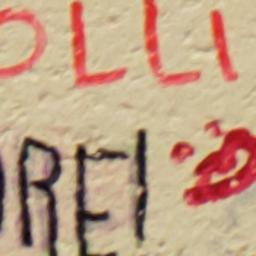 OLLI
REI